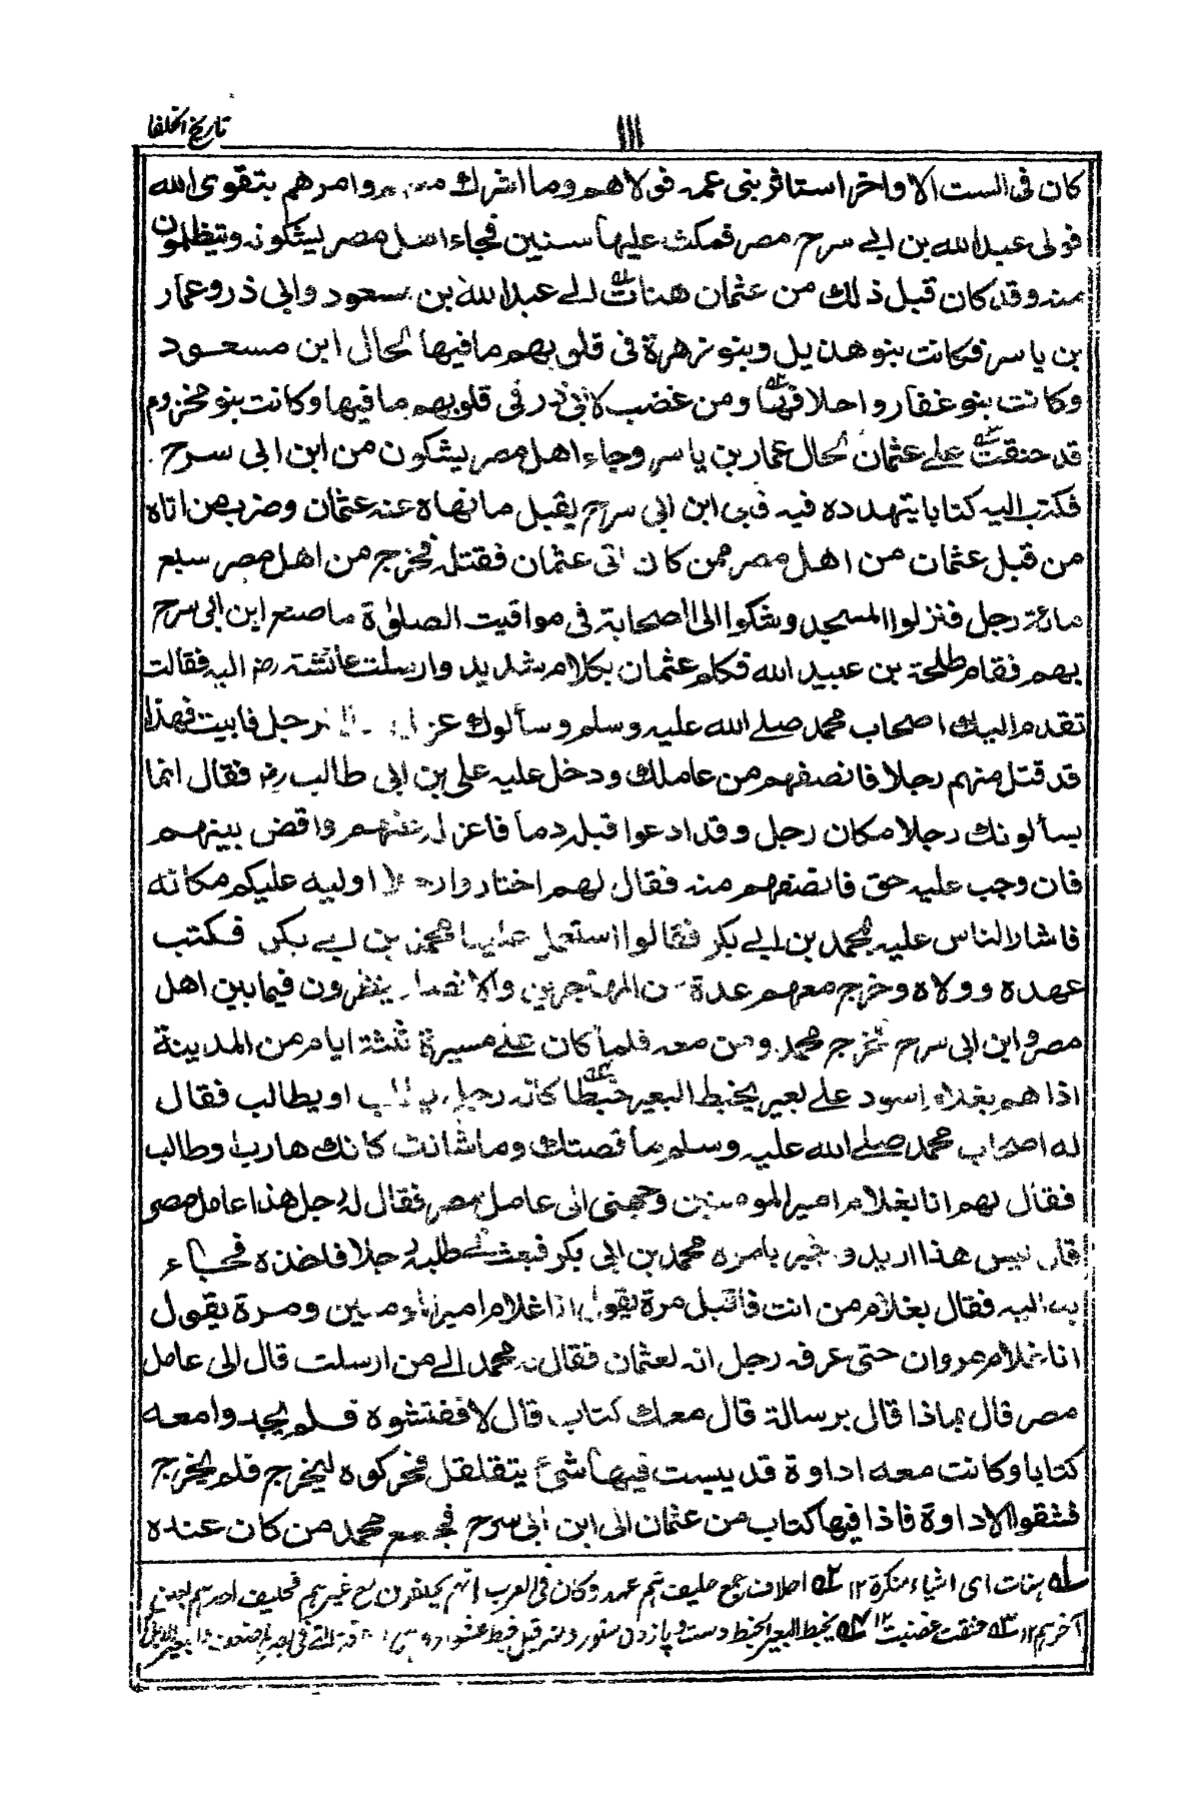 تاريخ الخلفا
١١١
كان فى الست الاواخر استاثر بنى عمه فولاهم وما اشرك معهم وامرهم بتقوى الله
فولى عبد الله بن ابى سرح مصر فمكث عليها سنين فجاء اهل مصر يشكونه ويتظلمون
منه وقد كان قبل ذلك من عثمان هنات الى عبد الله بن مسعود وابى ذر وعمار
بن ياسر فكانت بنو هذيل وبنو زهرة فى قلوبهم ما فيها لحال ابن مسعود
وكانت بنو غفار واحلافها ومن غضب لابى ذر فى قلوبهم ما فيها وكانت بنو مخزوم
قد حنقت على عثمان لحال عمار بن ياسر وجاء اهل مصر يشكون من ابن ابى سرح
فكتب اليه كتابا يتهدده فيه فابى ابن ابى سرح يقبل ما نهاه عنه عثمان وضرب من اتاه
من قبل عثمان من اهل مصر ممن كان اتى عثمان فقتله فخرج من اهل مصر سبع
مائة رجل فنزلوا المسجد وشكوا الى الصحابة فى مواقيت الصلوٰة ما صنع ابن ابى سرح
بهم فقام طلحة بن عبيد الله فكلم عثمان بكلام شديد وارسلت عائشة رض اليه فقالت
تقدم اليك اصحاب محمد صلى الله عليه وسلم وسألوك عزل رجل فابيت فهذا
قد قتل منهم رجلا فانصفهم من عاملك ودخل عليه على بن ابى طالب رض فقال انما
يسألونك رجلا مكان رجل وقد ادعوا قبله دما فاعزله عنهم واقض بينهم
فان وجب عليه حق فانصفهم منه فقال لهم اختاروا رجلا اوليه عليكم مكانه
فاشار الناس عليه بمحمد بن ابى بكر فقالوا استعمل علينا محمد بن ابى بكر فكتب
عهده وولاه وخرج معهم عدة من المهاجرين والانصار ينظرون فيما بين اهل
مصر وابن ابى سرح فخرج محمد ومن معه فلما كان على مسيرة ثلثة ايام من المدينة
اذا هم بغلام اسود على بعير يخبط البعير خبطا كانه رجل يطلب او يطالب فقال
له اصحاب محمد صلى الله عليه وسلم ما قصتك وما شانك كانك هارب او طالب
فقال لهم انا غلام امير المومنين وجهنى الى عامل مصر فقال له رجل هذا عامل مصر
قال ليس هذا اريد واخبر بامره محمد بن ابى بكر فبعث فى طلبه رجلا فاخذه فجاء
به اليه فقال بغلام من انت فاقبل مرة يقول انا غلام امير المومنين ومرة يقول
انا غلام مروان حتى عرفه رجل انه لعثمان فقال له محمد الى من ارسلت قال الى عامل
مصر قال بماذا قال برسالة قال معك كتاب قال لا ففتشوه فلم يجدوا معه
كتابا وكانت معه اداوة قد يبست فيها شئ يتقلقل فحركوه ليخرج فلم يخرج
فشقوا الاداوة فاذا فيها كتاب من عثمان الى ابن ابى سرح فجمع محمد من كان عنده
١ه هنات اى اشياء منكرة ١٢ ٢ه احلاف جمع حليف هم عهد وكان فى العرب انهم يحلفون مع غيرهم فحليف احدهم لبعض
آخرهم ١٢ ٣ه حنقت غضبت ١٢ ٤ه يخبط البعير الخبط دست و پا زدن ستور